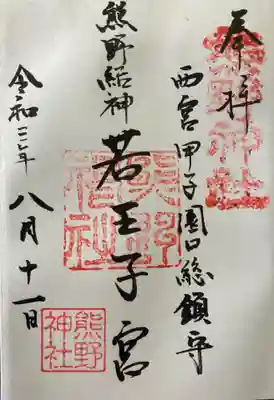 奉拝
西宮甲子園口総鎮守
若王子宮
熊野結神
令和三年八月十一日
熊野神社